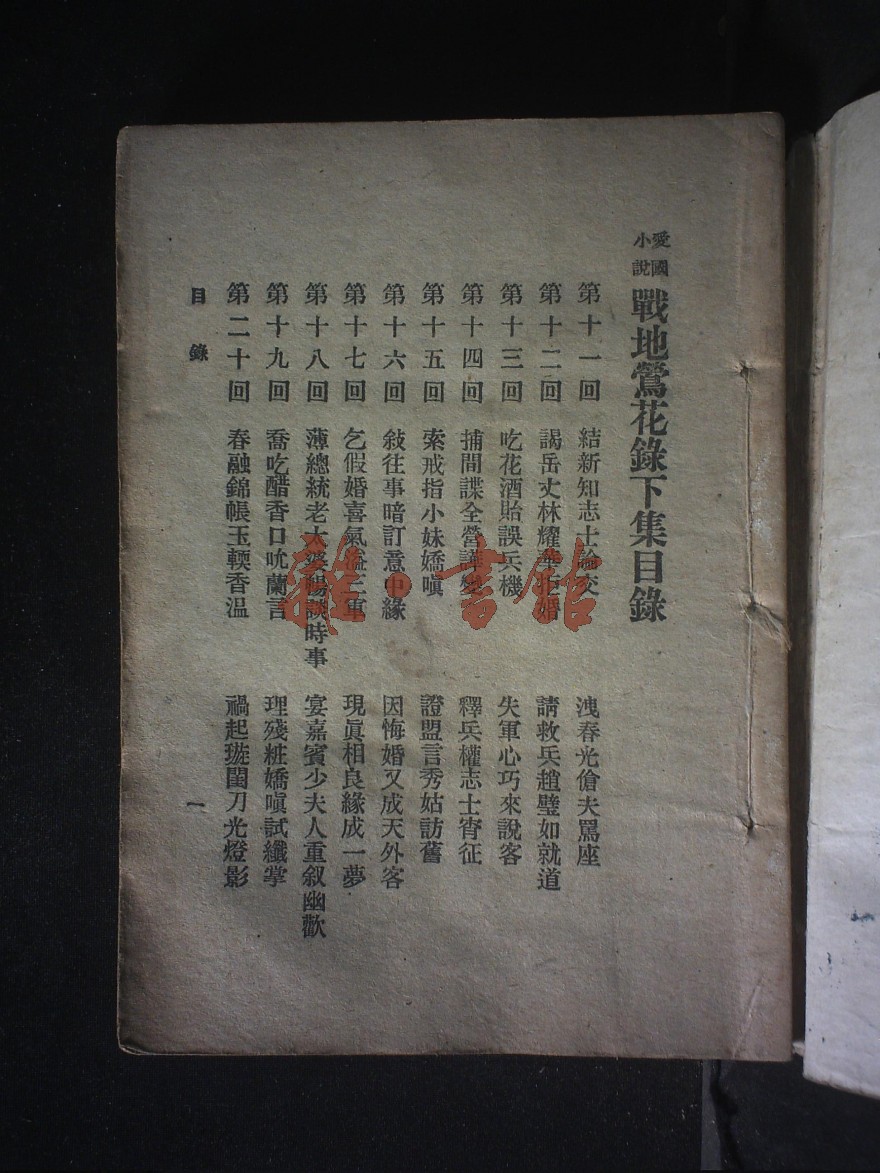 愛國小說 戰地鶯花錄下集目錄
第十一回 結新知志士論交 洩春光傖夫罵座
第十二回 謁岳丈林耀華拒婚 請救兵趙璧如就道
第十三回 吃花酒貽誤兵機 失軍心巧來說客
第十四回 捕間諜全營譁變 釋兵權志士宵征
第十五回 索戒指小妹嬌嗔 證盟言秀姑訪舊
第十六回 敍往事暗訂意中緣 因悔婚又成天外客
第十七回 乞假婚喜氣溢三軍 現眞相良緣成一夢
第十八回 薄總統老太婆暢談時事 宴嘉賓少夫人重叙幽歡
第十九回 喬吃醋香口吮蘭言 理殘粧嬌嗔試纖掌
第二十回 春融錦帳玉輭香溫 禍起璇閨刀光燈影
目錄 一
雜·書館